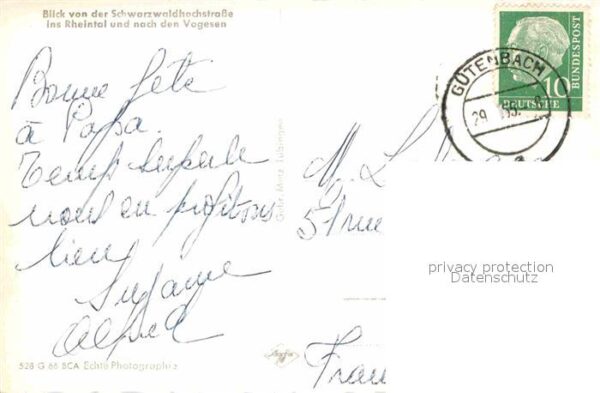 Blick von der Schwarzwaldhochstraße
ins Rheintal und nach den Vogesen
Bonne fête
à Papa.
Temps superbe
nous en profitons
bien
Suzanne
Alfred
528 G 66 BCA Echte Photographie
Gebr. Metz Tübingen
Agfa
GÜTENBACH
29.
10
DEUTSCHE
BUNDESPOST
M. L
51 rue
Fran
privacy protection
Datenschutz